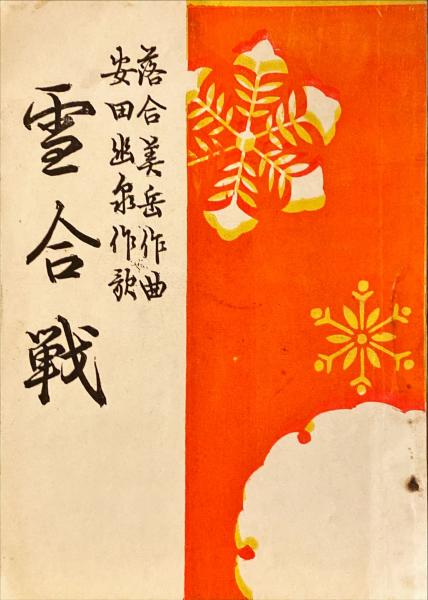 落合美岳作曲
安田幽泉作歌
雪合戦